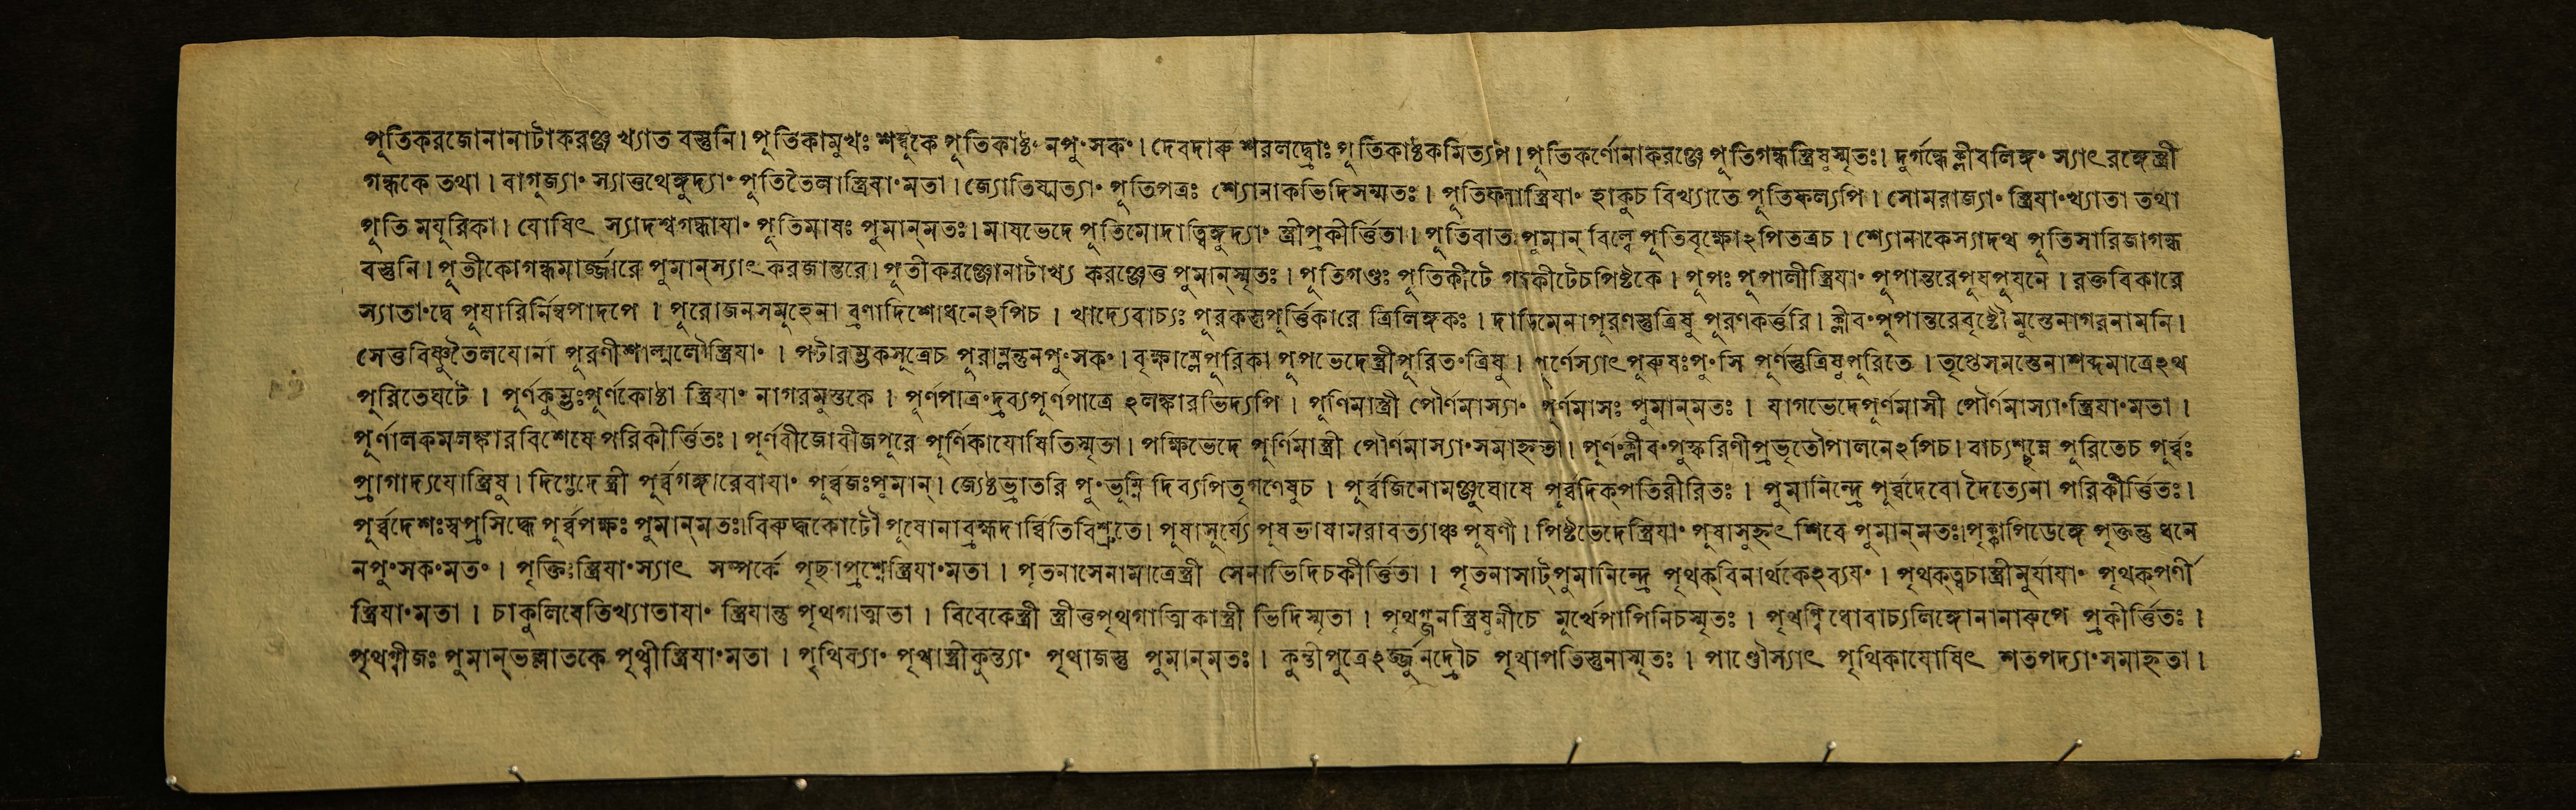 পূতিকরজোনানাটাকরঞ্জ খ্যাত বস্তুনি। পূতিকামুখঃ শম্বুকে পূতিকাষ্ঠং নপুংসকং। দেবদারু শরলদ্ব্রোঃ পূতিকাষ্ঠকমিত্যপি। পূতিকর্ণোনাকরঞ্জে পূতিগন্ধস্ত্রিষুস্মৃতঃ। দুর্গন্ধেক্লীবলিঙ্গং স্যাৎ রঙ্গেস্ত্রী
গন্ধকে তথা। বাগুজ্যাং স্যাত্তথেঙ্গুদ্যাং পূতিতৈলাস্ত্রিযাংমতা। জ্যোতিষ্মত্যাং পূতিপত্রঃ শ্যোনাকভিদিসম্মতঃ। পূতিফলাস্ত্রিযাং হাকুচ বিখ্যাতে পূতিফল্যপি। সোমরাজ্যাং স্ত্রিযাংখ্যাতা তথা
পূতি মযূরিকা। যোষিৎ স্যাদশ্বগন্ধাযাং পূতিমাষঃ পুমান্‌মতঃ। মাষভেদে পূতিমোদাত্বিঙ্গুদ্যাং স্ত্রীপ্রকীর্ত্তিতা। পূতিবাতঃপুমান্ বিল্বে পূতিবৃক্ষোঽপিতত্রচ। শ্যোনাকেস্যাদথ পূতিসারিজাগন্ধ
বস্তুনি। পূতীকোগন্ধমার্জ্জারে পুমান্‌স্যাৎ করজান্তরে। পূতীকরঞ্জোনাটাখ্য করঞ্জেত্ত পুমান্‌স্মৃতঃ। পূতিগণ্ডঃ পূতিকীটে গন্ধকীটেচপিষ্টকে। পূপঃ পূপালীস্ত্রিযাং পূপান্তরেপূযপূযনে। রক্তবিকারে
স্যাতাংদ্বে পূযারির্নিম্বপাদপে। পূরোজনসমূহেনা ব্রণাদিশোধনেঽপিচ। খাদ্যেবাচ্যঃ পূরকস্তুপূর্ত্তিকারে ত্রিলিঙ্গকঃ। দাড়িমেনাপূরণস্তুত্রিষু পূরণকর্ত্তরি। ক্লীবংপূপান্তরেবৃষ্টৌ মুস্তেনাগরনামনি।
সেত্তবিষ্ণুতৈলযোর্না পূরণীশাল্মলৌস্ত্রিযাং। পটারম্ভকসূত্রেচ পূরাম্লন্তুনপুংসকং। বৃক্ষাম্লেপূরিকা পূপভেদেস্ত্রীপূরিতংত্রিষু। পূর্ণেস্যাৎপূরুষঃপুংসি পূর্ণস্তুত্রিষুপূরিতে। তৃপ্তেসমস্তেনাশব্দমাত্রেঽথ
পূরিতেঘটে। পূর্ণকুম্ভঃপূর্ণকোষ্ঠা স্ত্রিযাং নাগরমুস্তকে। পূর্ণপাত্রংদ্রব্যপূর্ণপাত্রে ঽলঙ্কারভিদ্যপি। পূণিমাস্ত্রী পৌর্ণমাস্যাং পূর্ণমাসঃ পুমান্‌মতঃ। যাগভেদেপূর্ণমাসী পৌর্ণমাস্যাংস্ত্রিযাংমতা।
পূর্ণালকমলঙ্কারবিশেষে পরিকীর্ত্তিতঃ। পূর্ণবীজোবীজপূরে পূর্ণিকাযোষিতিস্মৃতা। পক্ষিভেদে পূর্ণিমাস্ত্রী পৌর্ণমাস্যাংসমাহৃতা। পূর্ণংক্লীবংপুষ্করিণীপ্রভৃতৌপালনেঽপিচ। বাচ্যশ্ছন্নে পূরিতেচ পূর্ব্বঃ
প্রাগাদ্যযোস্ত্রিষু। দিগ্ভেদেস্ত্রী পূর্ব্বগঙ্গারেবাযাং পূর্ব্বজঃপুমান্। জ্যেষ্ঠভ্রাতরি পুংভূম্নি দিব্যপিতৃগণেষুচ। পূর্ব্বজিনোমঞ্জুঘোষে পূর্ব্বদিক্‌পতিরীরিতঃ। পুমানিন্দ্রে পূর্ব্বদেবো দৈত্যেনা পরিকীর্ত্তিতঃ।
পূর্ব্বদেশঃস্বপ্রসিদ্ধে পূর্ব্বপক্ষঃ পুমান্‌মতঃ। বিরুদ্ধকোটৌ পূষোনাব্রহ্মদার্ব্বিতিবিশ্রুতে। পূষাসূর্য্যে পূষভাষামরাবত্যাঞ্চ পূষণী। পিষ্টভেদেস্ত্রিযাং পূষাসুহৃৎ শিবে পুমান্‌মতঃ। পৃক্কাপিডেঙ্গে পৃক্তন্তু ধনে
নপুংসকংমতং। পৃক্তিঃস্ত্রিযাংস্যাৎ সম্পর্কে পৃছাপ্রশ্নেস্ত্রিযাংমতা। পৃতনাসেনামাত্রেস্ত্রী সেনাভিদিচকীর্ত্তিতা। পৃতনাসাট্‌পুমানিন্দ্রে পৃথক্‌বিনার্থকেঽব্যযং। পৃথক্‌ত্বচাস্ত্রীমূর্ব্বাযাং পৃথক্‌পর্ণী
স্ত্রিযাংমতা। চাকুলিযেতিখ্যাতাযাং স্ত্রিযান্তু পৃথগাত্মতা। বিবেকেস্ত্রী স্ত্রীত্তপৃথগাত্মিকাস্ত্রী ভিদিস্মৃতা। পৃথগ্জনস্ত্রিষুনীচে মূর্খেপাপিনিচস্মৃতঃ। পৃথগ্বিধোবাচ্যলিঙ্গোনানারূপে প্রকীর্ত্তিতঃ।
পৃথগ্বীজঃ পুমান্‌ভল্লাতকে পৃথ্বীস্ত্রিযাংমতা। পৃথিব্যাং পৃথাস্ত্রীকুন্ত্যাং পৃথাজস্তু পুমান্‌মতঃ। কুন্তীপুত্রেঽর্জ্জুনদ্রৌচ পৃথাপতিস্তুনাস্মৃতঃ। পাণ্ডৌস্যাৎ পৃথিকাযোষিৎ শতপদ্যাংসমাহৃতা।